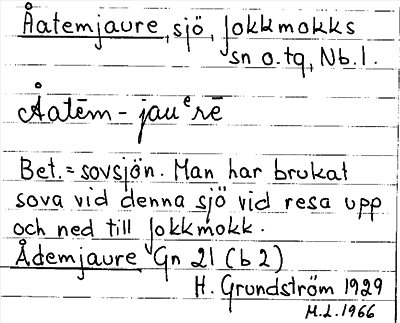 Åatemjaure, sjö, Jokkmokks
sn o. tq, Nb. l.
Åatēm - jauᵉrē
Bet. = sovsjön. Man har brukat
sova vid denna sjö vid resa upp
och ned till Jokkmokk.
Ådemjaure Gn 21 (b 2)
H. Grundström 1929
M.L. 1966